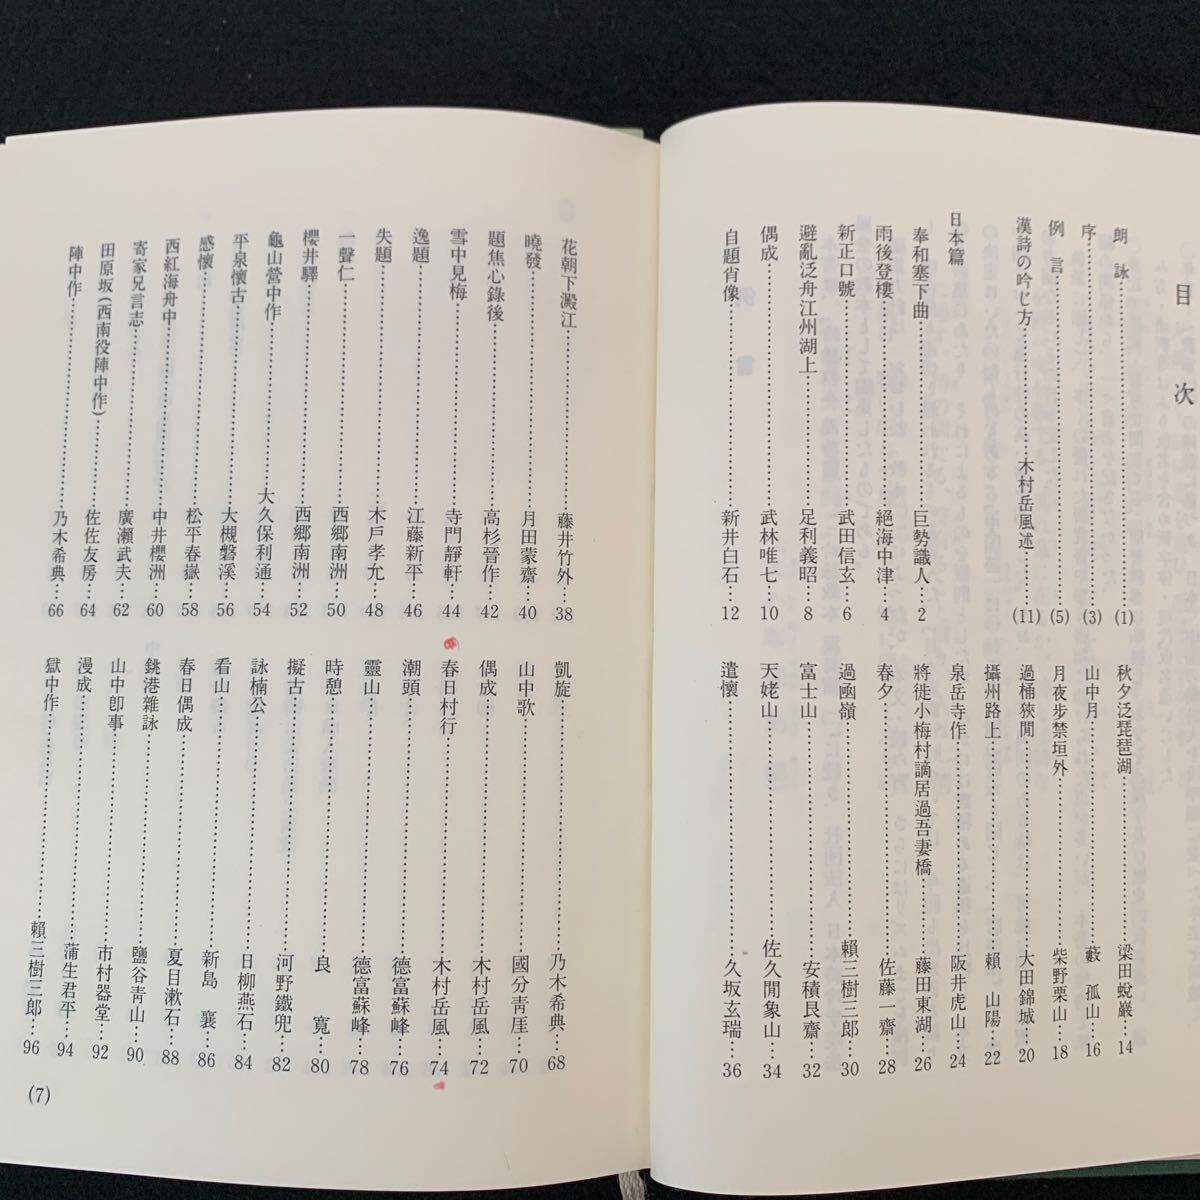 目次
朗詠…(1)
序…(3)
例言…(5)
漢詩の吟じ方…木村岳風述…(11)
日本篇
奉和塞下曲…巨勢識人…2
雨後登樓…絕海中津…4
新正口號…武田信玄…6
避亂泛舟江州湖上…足利義昭…8
偶成…武林唯七…10
自題肖像…新井白石…12
秋夕泛琵琶湖…梁田蛻巖…14
山中月…藪孤山…16
月夜步禁垣外…柴野栗山…18
過桶狹間…大田錦城…20
攝州路上…賴山陽…22
泉岳寺作…阪井虎山…24
將徙小梅村謫居過吾妻橋…藤田東湖…26
春夕…佐藤一齋…28
過凾嶺…賴三樹三郎…30
富士山…安積艮齋…32
天姥山…佐久間象山…34
遣懷…久坂玄瑞…36
花朝下澱江…藤井竹外…38
曉發…月田蒙齋…40
題焦心錄後…高杉晉作…42
雪中見梅…寺門靜軒…44
逸題…江藤新平…46
失題…木戶孝允…48
一聲仁…西鄕南洲…50
櫻井驛…西鄕南洲…52
龜山營中作…大久保利通…54
平泉懷古…大槻磐溪…56
感懷…松平春嶽…58
西紅海舟中…中井櫻洲…60
寄家兄言志…廣瀨武夫…62
田原坂(西南役陣中作)…佐佐友房…64
陣中作…乃木希典…66
凱旋…乃木希典…68
山中歌…國分靑厓…70
偶成…木村岳風…72
春日村行…木村岳風…74
潮頭…德富蘇峰…76
靈山…德富蘇峰…78
時憩…良寬…80
擬古…河野鐵兜…82
詠楠公…日柳燕石…84
看山…新島襄…86
春日偶成…夏目漱石…88
銚港雜詠…鹽谷靑山…90
山中卽事…市村器堂…92
漫成…蒲生君平…94
獄中作…賴三樹三郎…96
(7)